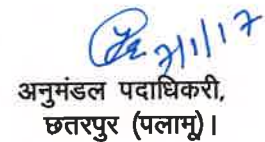 7/1/17
अनुमंडल पदाधिकरी,
छतरपुर (पलामू)।